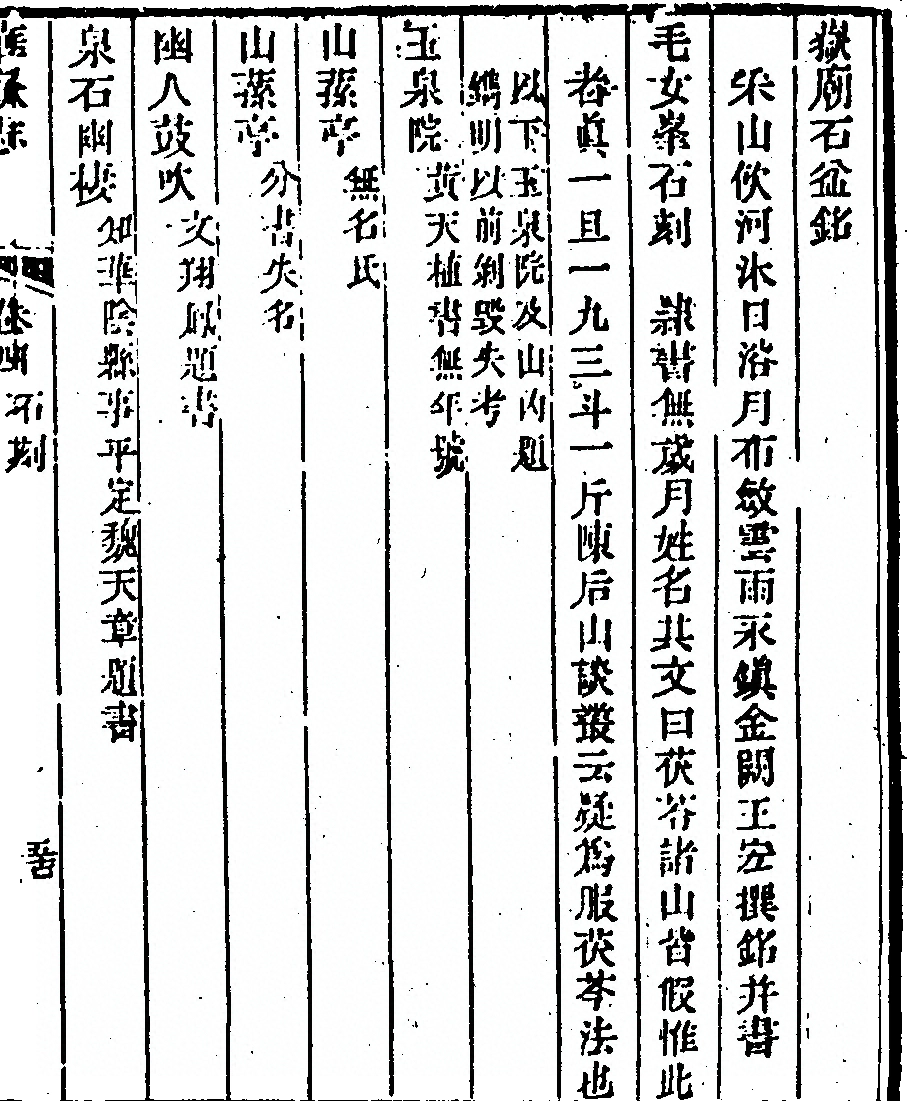 嶽廟石盆銘
采山伙河沐日浴月布敏雲雨永鎮金闕王宏撰銘并書
毛女峯石刻　隷書無歲月姓名其文曰茯苓諸山皆假惟此
者眞一旦一九三斗一斤陳后山談叢云疑爲服茯苓法也
以下玉泉院及山內題
鐫明以前剝毀失考
玉泉院　黃天植書無年號
山蓀亭　無名氏
山蓀亭　分書失名
幽人鼓吹　文翔鳳題書
泉石幽棲　知華陰縣事平定魏天章題書
卷四　石刻